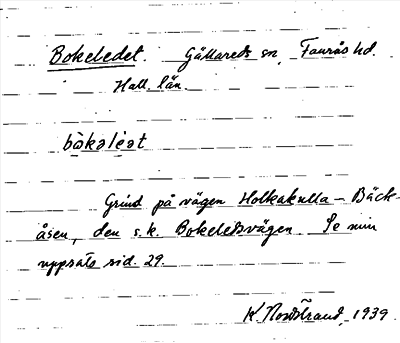 Bokeledet. Gällareds sn, Faurås hd.
Hall. län.
bòkəléət
Grind på vägen Holkakulla – Bäck-
åsen, den s.k. Bokeledsvägen. Se min
uppsats sid. 29.
K Nordstrand, 1939